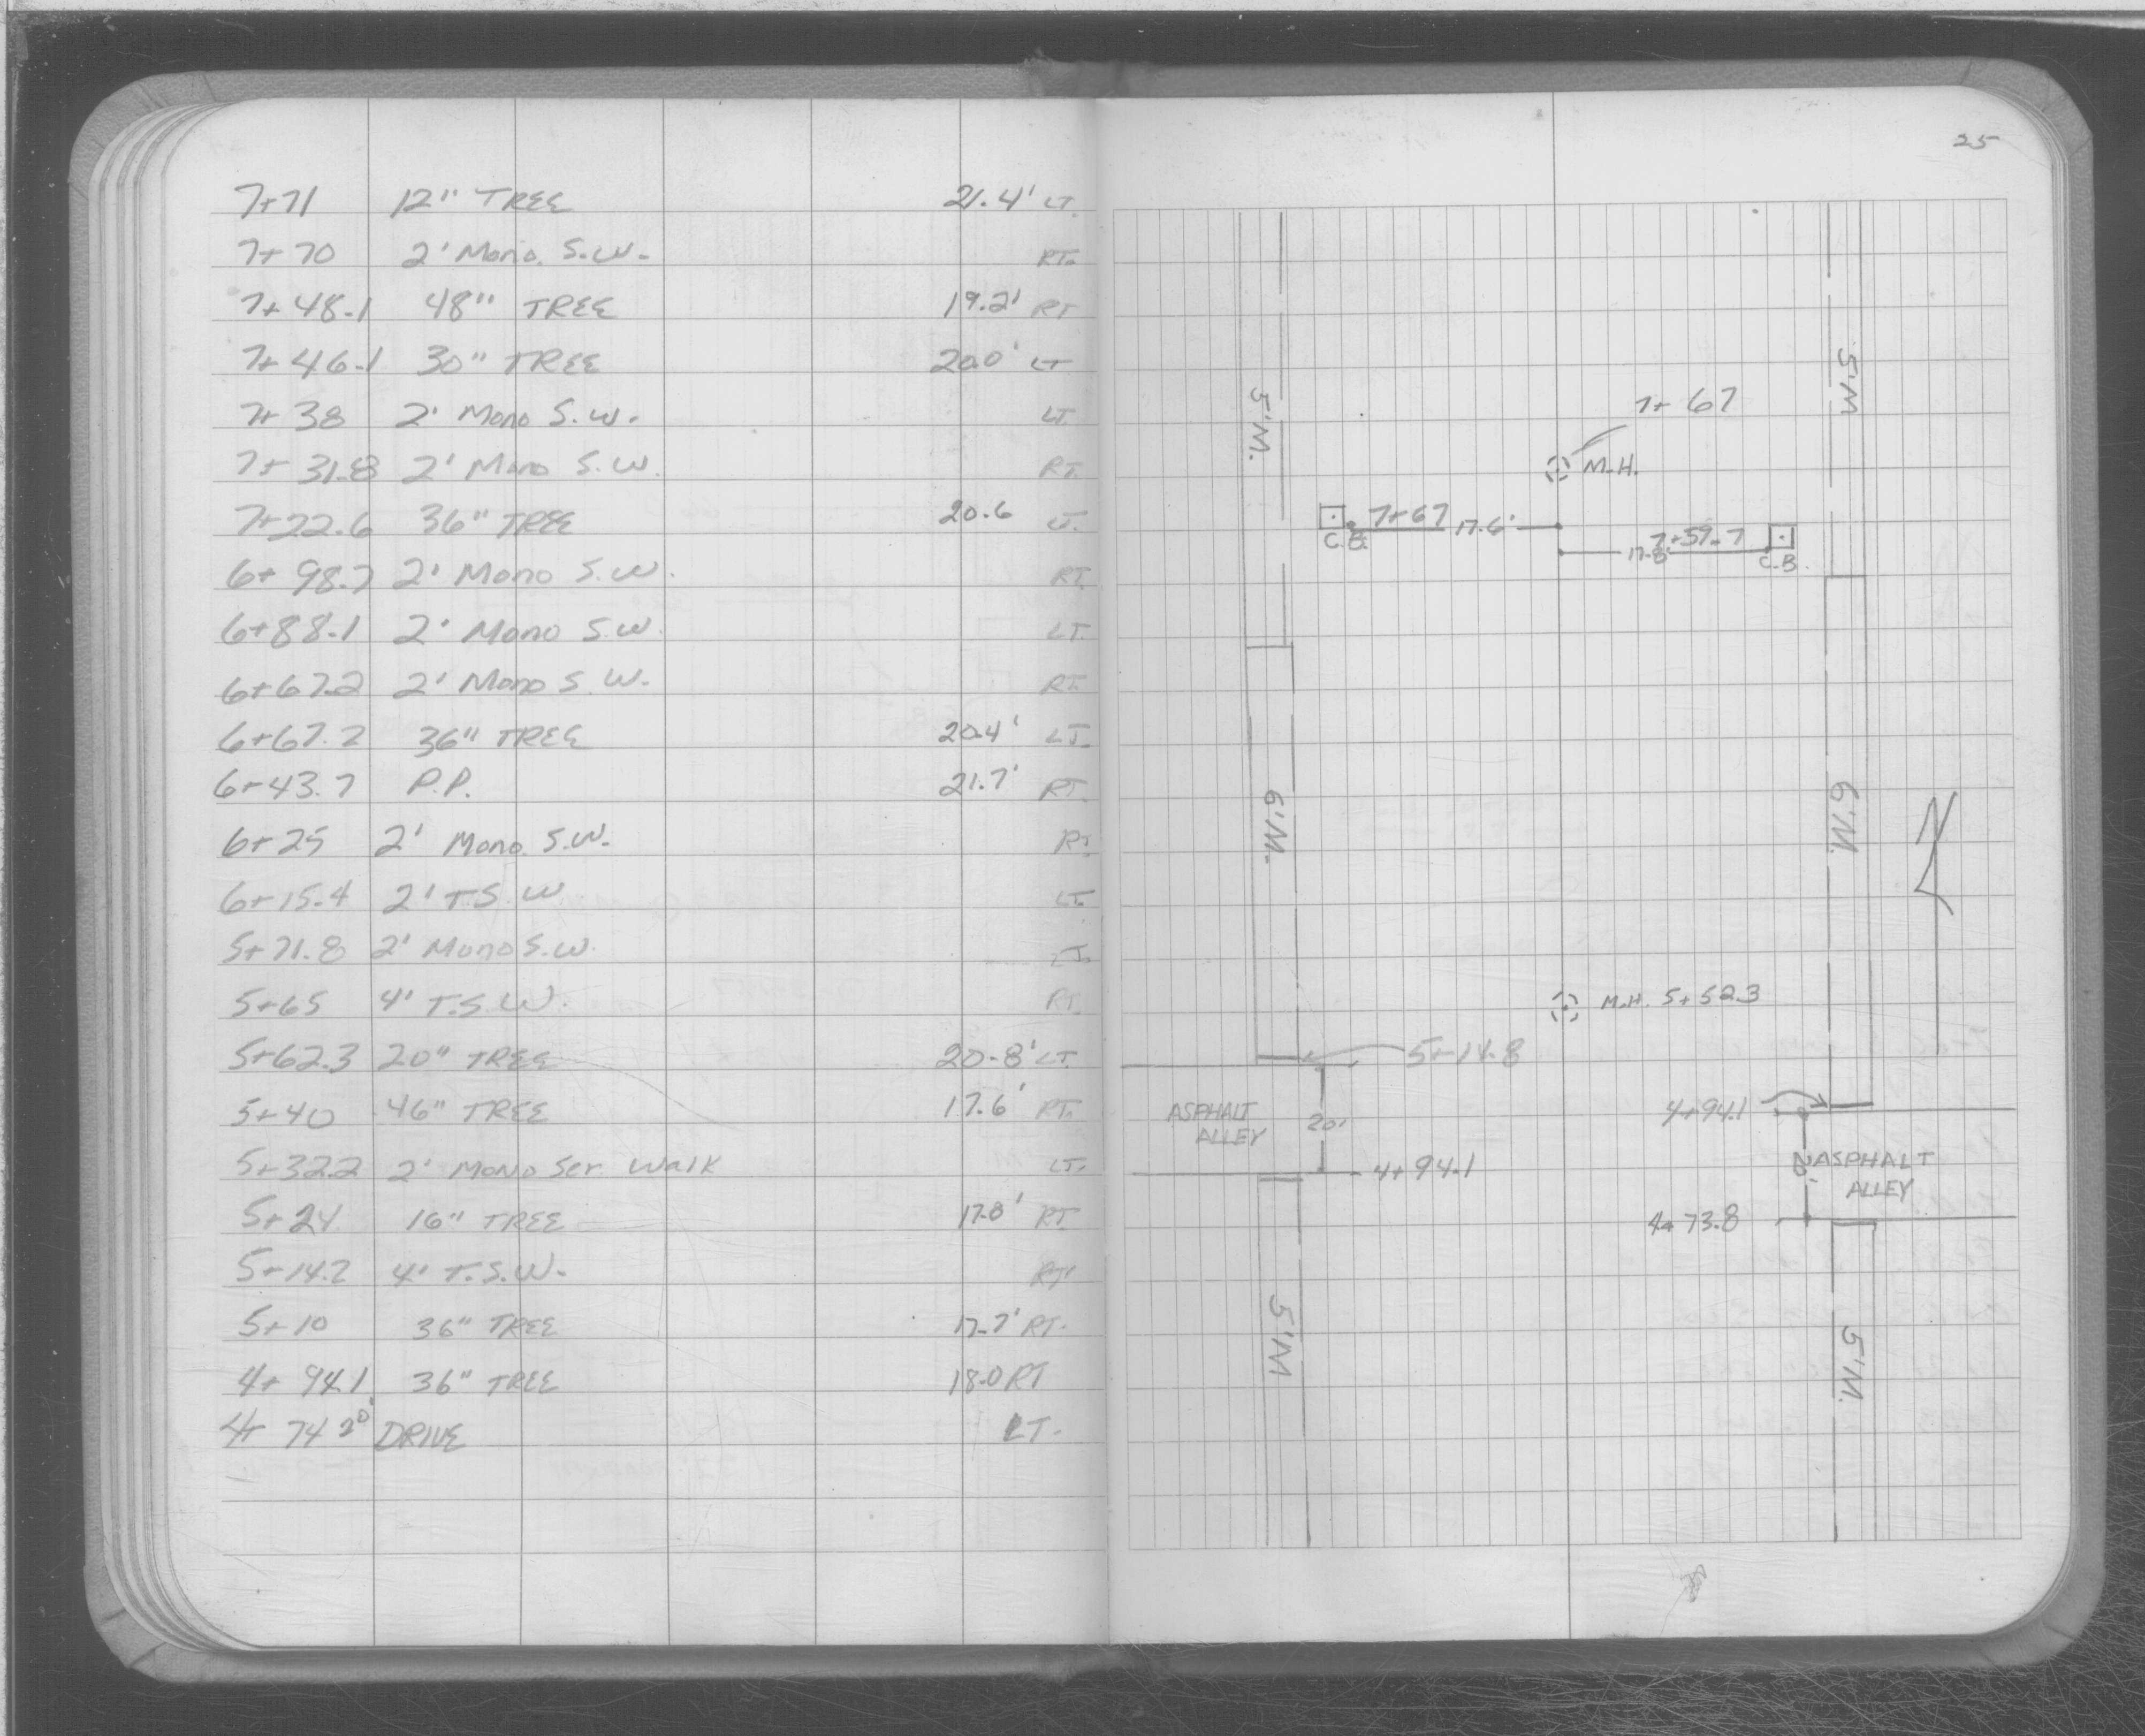 7+71 12" TREE 21.4' LT.
7+70 2' Mono. S.W. RT.
7+48.1 48" TREE 19.2' RT
7+46.1 30" TREE 20.0' LT
7+38 2' Mono S.W. LT.
7+31.8 2' Mono S.W. RT.
7+22.6 36" TREE 20.6 LT.
6+98.7 2' Mono S.W. RT.
6+88.1 2' Mono S.W. LT.
6+67.2 2' Mono S.W. RT.
6+67.2 36" TREE 20.4' LT.
6+43.7 P.P. 21.7' RT.
6+25 2' Mono. S.W. RT
6+15.4 2' T.S.W LT.
5+71.8 2' Mono S.W. LT.
5+65 4' T.S.W. RT.
5+62.3 20" TREE 20.8' LT.
5+40 46" TREE 17.6' RT.
5+32.2 2' MONO Ser. Walk LT.
5+24 16" TREE 17.8' RT
5+14.2 4' T.S.W. RT
5+10 36" TREE 17.7' RT.
4+94.1 36" TREE 18.0 RT
4+74 20' DRIVE LT.
25
5'M.
5'M
7+67
M.H.
7+67 17.6'
C.B.
7+59.7
17.8'
C.B.
6'M.
6'M.
N
M.H. 5+52.3
5+14.8
ASPHALT
ALLEY
20'
4+94.1
4+94.1
20'
ASPHALT
ALLEY
4+73.8
5'M
5'M.